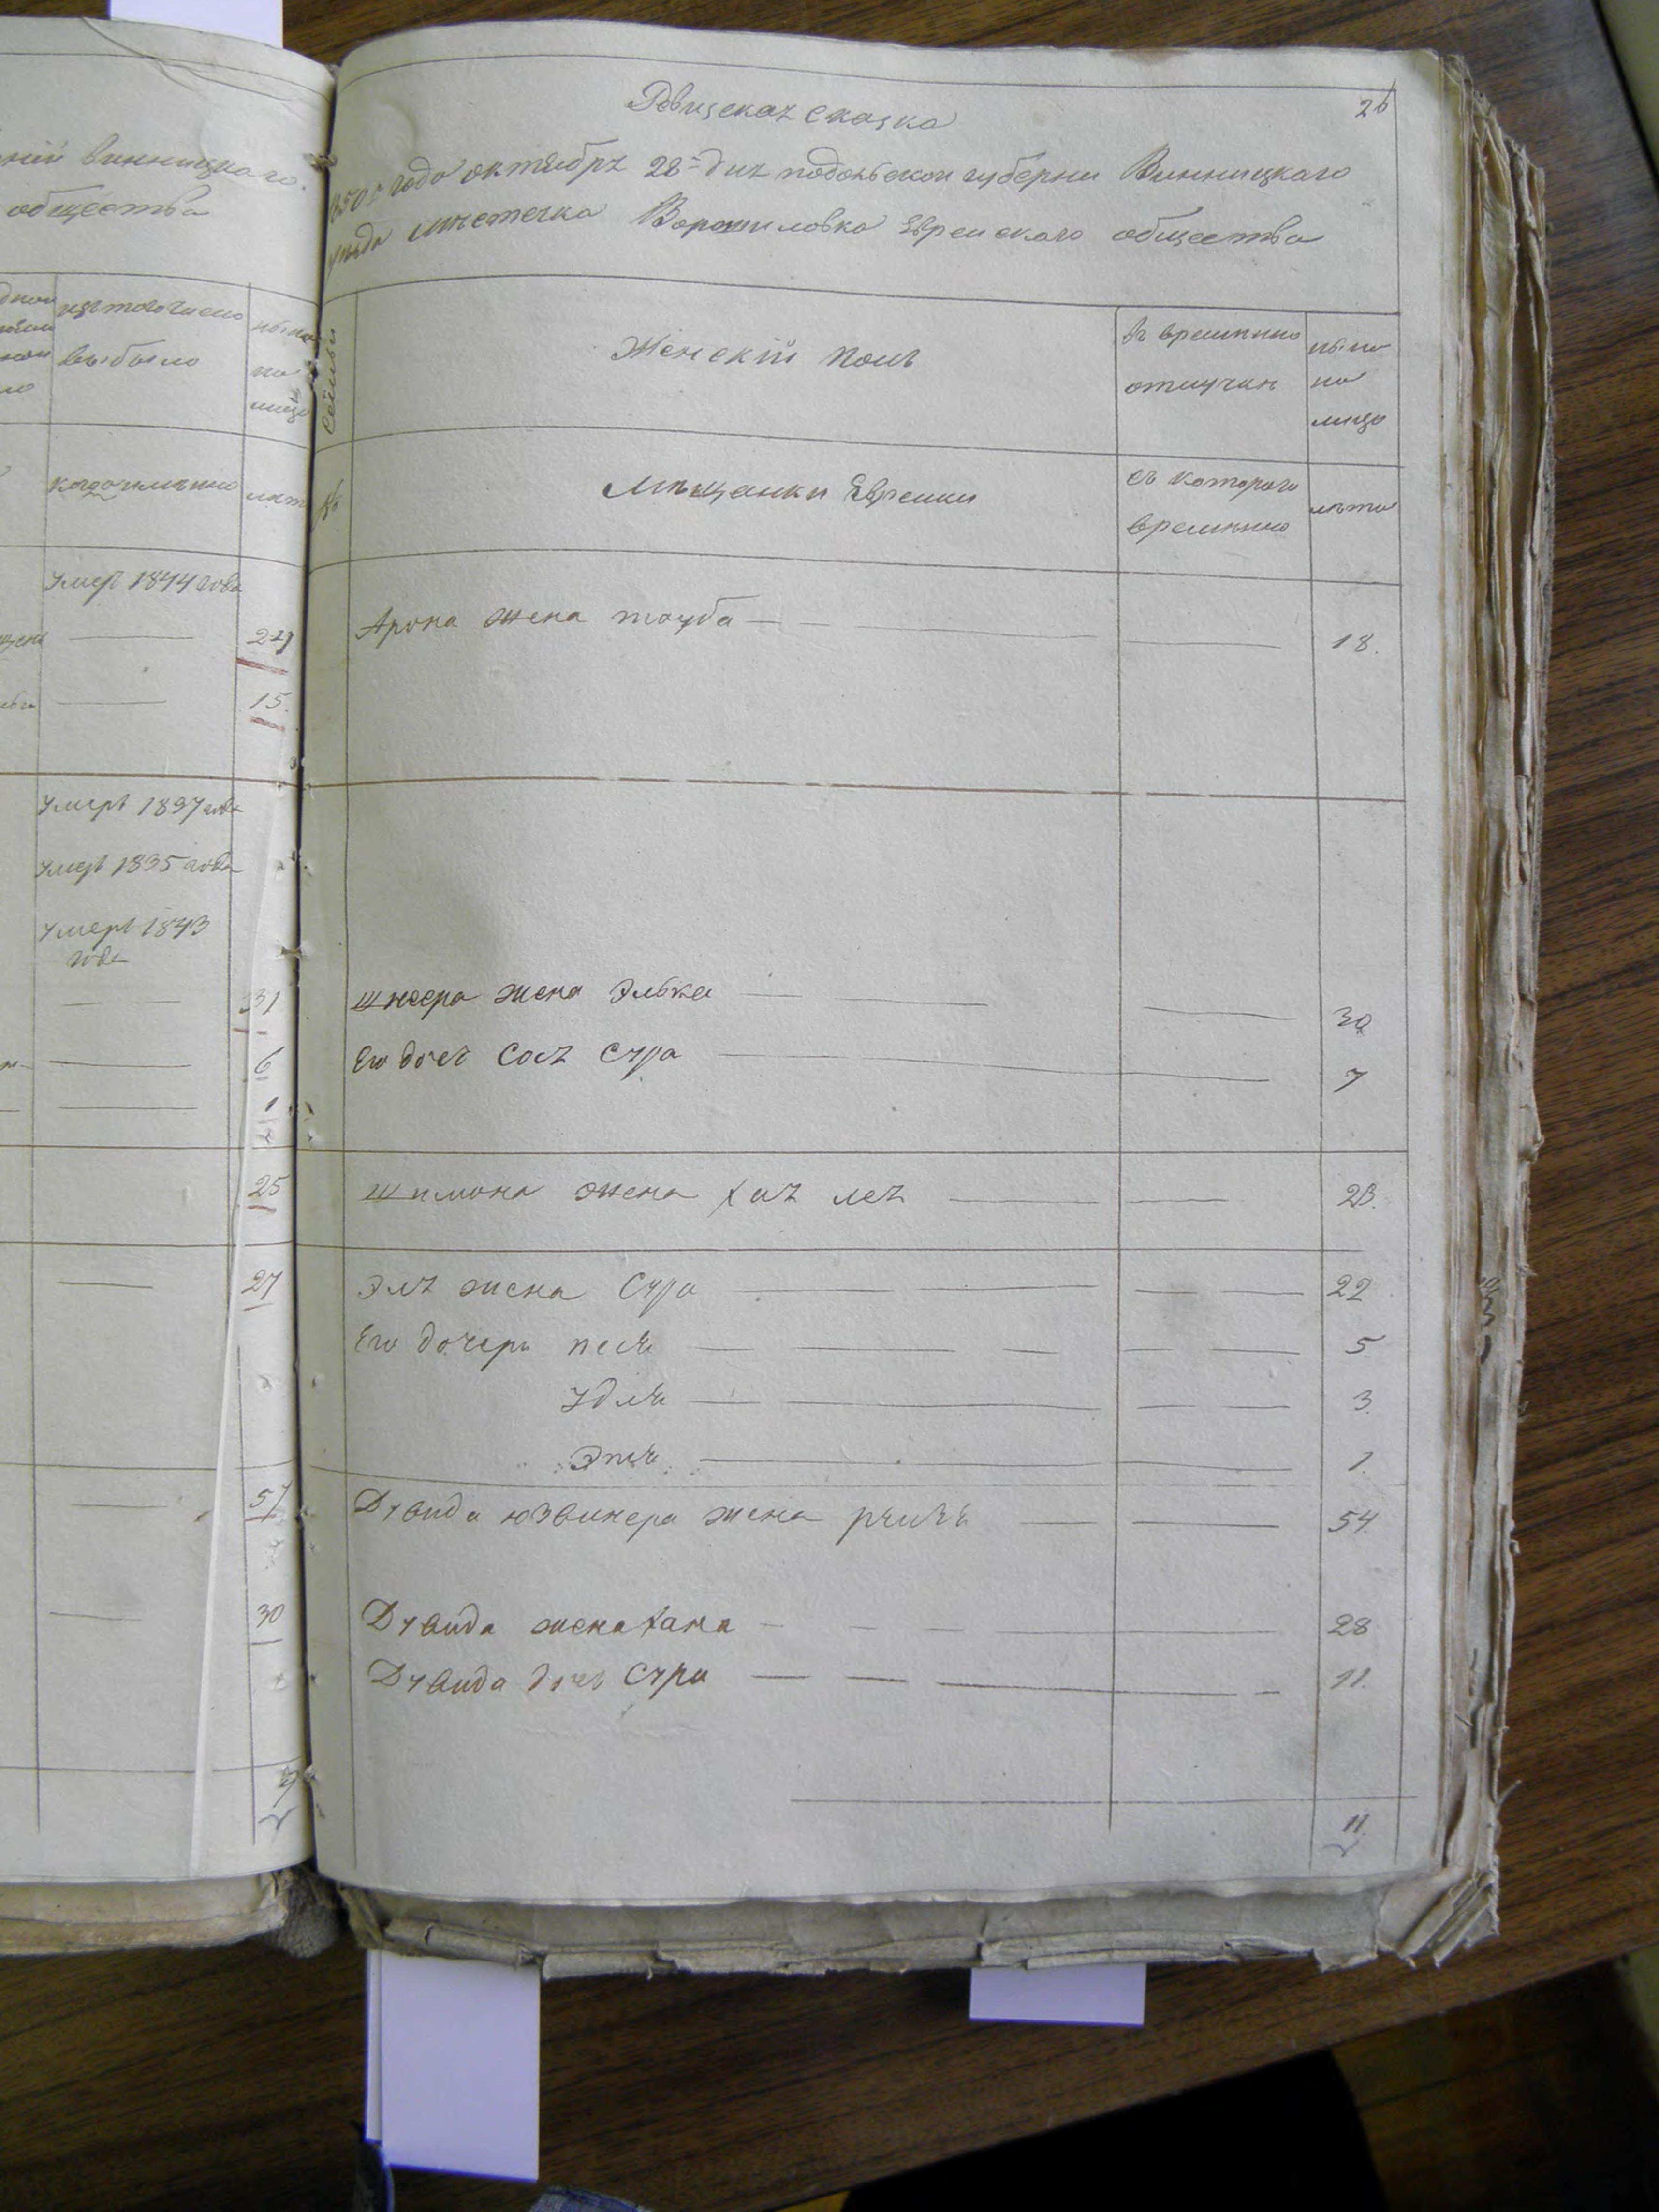 ній винницкаго
общества
изъ того числа
выбыло
ныне
на
лицо
когда именно
лета
умеръ 1844 года
29
15.
умеръ 1837 года
умеръ 1835 года
умеръ 1843
года
31
6
1
25
27
57
30
Ревизская сказка
26
1850го года октября 28го дня подольской губерни Винницкаго
уезда местечка Ворошиловка Еврейскаго общества
Семьи
Женскій полъ
въ временно
отлучки
ныне
на
лицо
№
Мещанки Еврейки
съ котораго
времянно
лета
Арона жена тауба
18.
шнеера жена Элька
30
Его дочь Сося Сура
7
шимона жена хая лея
23.
Эля жена Сура
22
Его дочери песя
5
Удля
3
Этя
1.
Дувида Юзвинера жена
54.
Дувида жена хана
28
Дувида дочь Сура
11.
11.